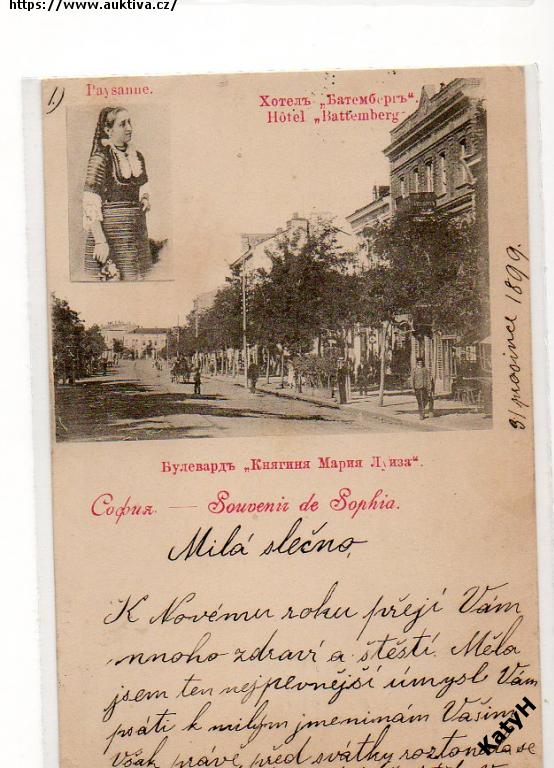 https://www.auktiva.cz/
1.)
Paysanne.
Хотелъ „Батембергъ“.
Hôtel „Battemberg
31 prosince 1899.
Булевардъ „Княгиня Мария Луиза“.
София. — Souvenir de Sophia.
Milá slečno,
K Novému roku přejí Vám
mnoho zdraví a štěstí. Měla
jsem ten nejpevnější úmysl Vám
psáti k milým jmeninám Vašim
Však právě před svátky roztonala se
KatyH